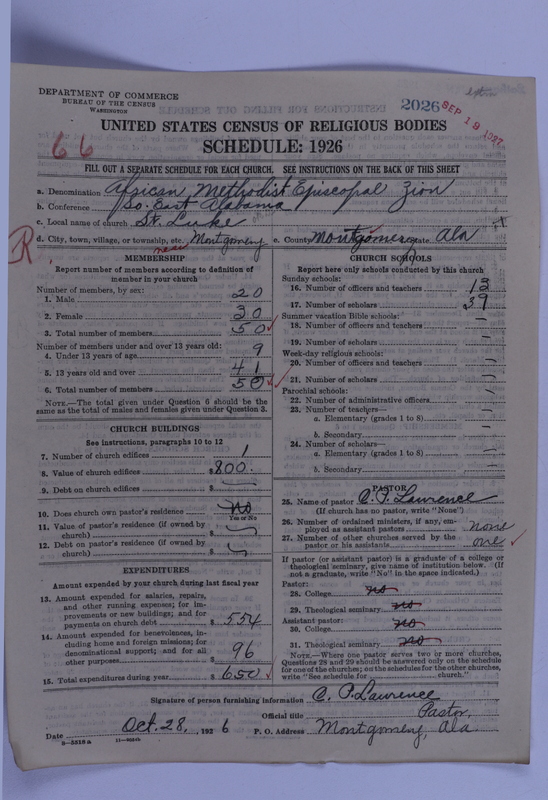 DEPARTMENT OF COMMERCE
BUREAU OF THE CENSUS
WASHINGTON
2026
SEP 19 1927
66
UNITED STATES CENSUS OF RELIGIOUS BODIES
SCHEDULE: 1926
FILL OUT A SEPARATE SCHEDULE FOR EACH CHURCH. SEE INSTRUCTIONS ON THE BACK OF THIS SHEET
a. Denomination African Methodist Episcopal Zion
b. Conference So. East Alabama
c. Local name of church St. Luke
d. City, town, village, or township, etc. near Montgomery e. County Montgomery State Ala
R
MEMBERSHIP
Report number of members according to definition of member in your church
Number of members, by sex:
1. Male 20
2. Female 30
3. Total number of members 50
Number of members under and over 13 years old:
4. Under 13 years of age 9
5. 13 years old and over 41
6. Total number of members 50
NOTE.—The total given under Question 6 should be the
same as the total of males and females given under Question 3.
CHURCH BUILDINGS
See instructions, paragraphs 10 to 12
7. Number of church edifices 1
8. Value of church edifices $800.
9. Debt on church edifices $ —
10. Does church own pastor's residence No
Yes or No
11. Value of pastor's residence (if owned by
church) $
12. Debt on pastor's residence (if owned by
church) $
EXPENDITURES
Amount expended by your church during last fiscal year
13. Amount expended for salaries, repairs,
and other running expenses; for im-
provements or new buildings; and for
payments on church debt $ 554
14. Amount expended for benevolences, in-
cluding home and foreign missions; for
denominational support; and for all
other purposes $ 96
15. Total expenditures during year $ 650
CHURCH SCHOOLS
Report here only schools conducted by this church
Sunday schools:
16. Number of officers and teachers 13
17. Number of scholars 39
Summer vacation Bible schools:
18. Number of officers and teachers —
19. Number of scholars —
Week-day religious schools:
20. Number of officers and teachers —
21. Number of scholars —
Parochial schools:
22. Number of administrative officers —
23. Number of teachers—
a. Elementary (grades 1 to 8) —
b. Secondary —
24. Number of scholars—
a. Elementary (grades 1 to 8) —
b. Secondary —
PASTOR
25. Name of pastor C. P. Lawrence
(If church has no pastor, write "None")
26. Number of ordained ministers, if any, em-
ployed as assistant pastors none
27. Number of other churches served by the
pastor or his assistants one
If pastor (or assistant pastor) is a graduate of a college or
theological seminary, give name of institution below. (If
not a graduate, write "No" in the space indicated.)
Pastor:
28. College no
29. Theological seminary no
Assistant pastor:
30. College no
31. Theological seminary no
NOTE.—Where one pastor serves two or more churches,
Questions 28 and 29 should be answered only on the schedule
for one of the churches; on the schedules for the other churches,
write "See schedule for church."
Signature of person furnishing information C. P. Lawrence
Official title Pastor,
Date Oct. 28, 1926 P. O. Address Montgomery, Ala